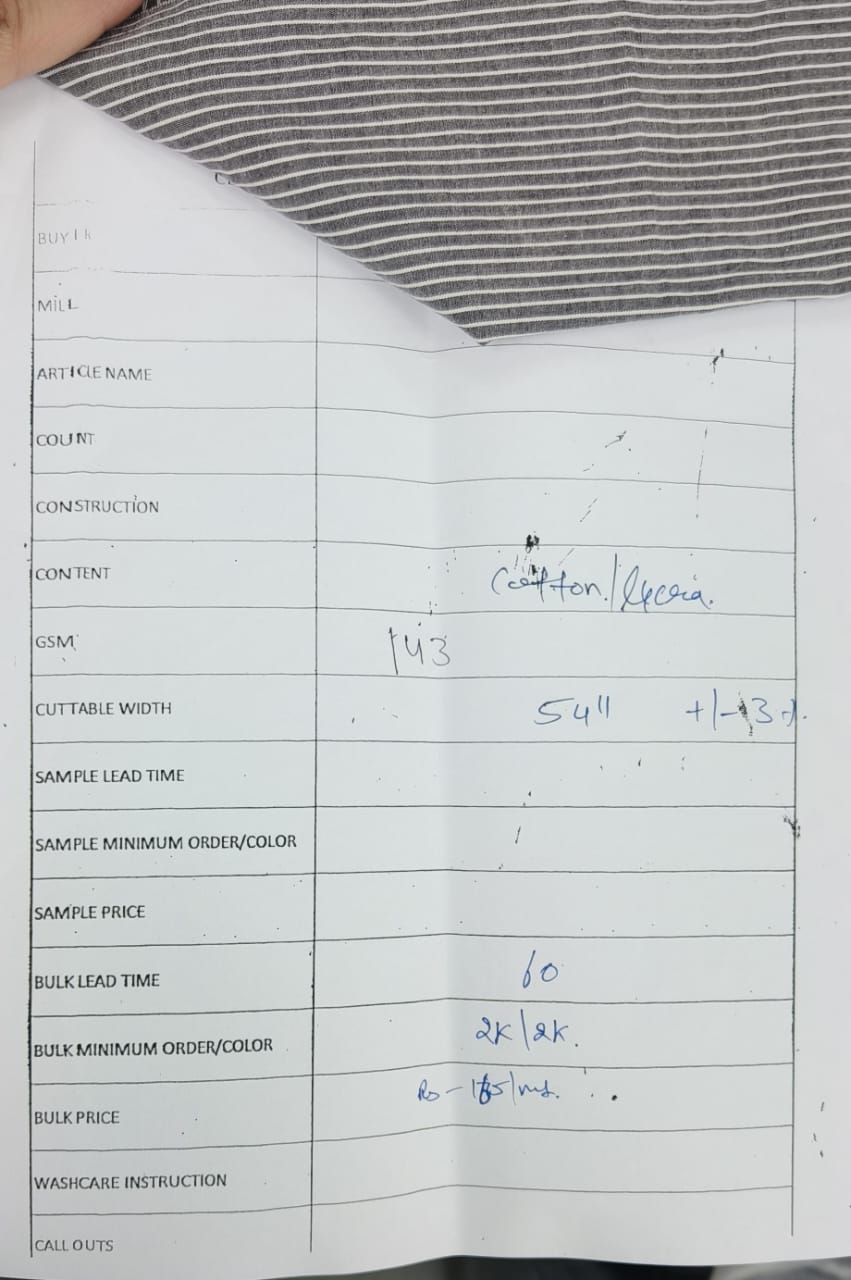 BUYER
MILL
ARTICLE NAME
COUNT
CONSTRUCTION
CONTENT Cotton/lycra.
GSM 143
CUTTABLE WIDTH 54" +/-3%.
SAMPLE LEAD TIME
SAMPLE MINIMUM ORDER/COLOR
SAMPLE PRICE
BULK LEAD TIME 60
BULK MINIMUM ORDER/COLOR 2K/2K.
BULK PRICE Rs -
WASHCARE INSTRUCTION
CALL OUTS